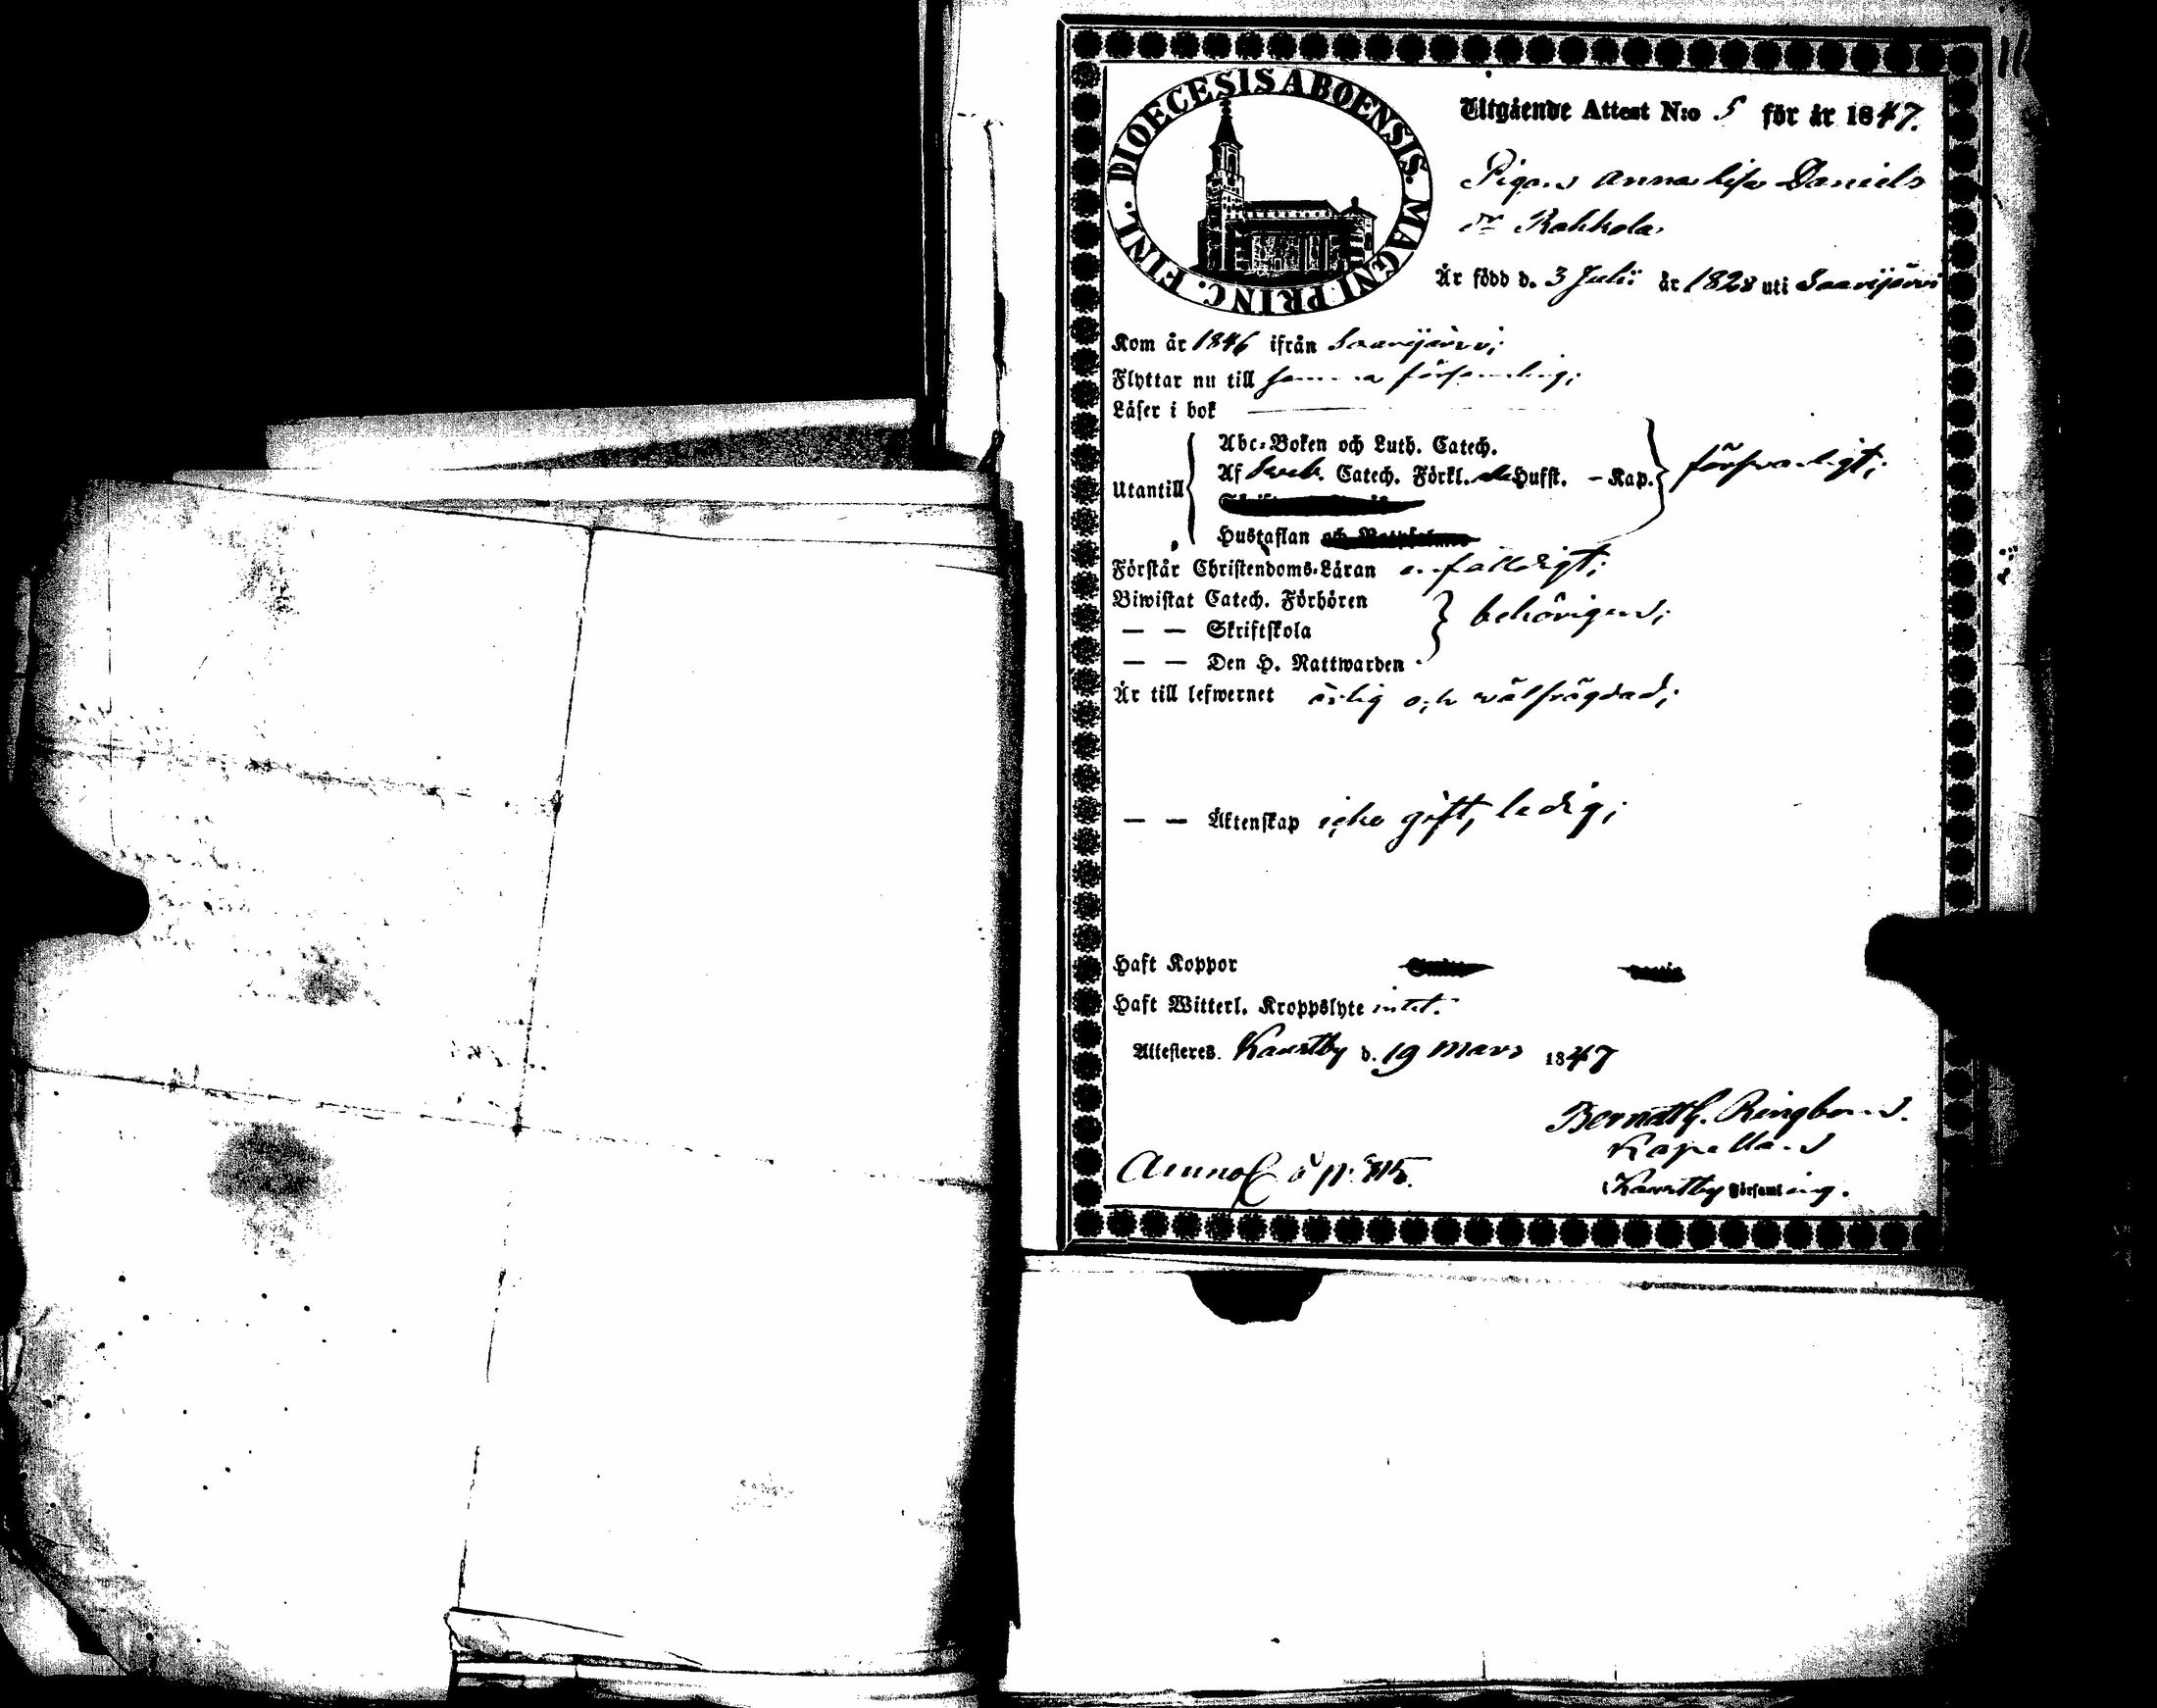 DIOECESIS ABOENSIS. MAGNI PRINC. FINL.
Utgående Attest N:o 5 för år 1847.
Pigan Anna Lisa Daniels
dr Rahkola
Är född d. 3 Julii år 1828 uti Saarijärvi
Kom år 1846 ifrån Saarijärvi;
Flyttar nu till samma församling;
Läser i bok
Utantill
Abc-Boken och Luth. Catech.
Af Sveb. Catech. Förkl. Hufst. - Kap.
försvarligt;
Hustaflan
Förstår Christendoms-Läran enfaldigt;
Biwistat Catech. Förhören
— — Skriftskola
behörigen;
— — Den H. Nattwarden
Är till lefwernet ärlig och välfrägdad;
— — Äktenskap icke gift, ledig;
Haft Koppor
Haft Witterl. Kroppslyte intet.
Attesteres. Karstby d. 19 Mars 1847
Kapellan
i Karstby Församling.